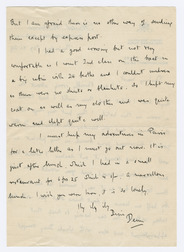 But I am afraid there is no other way of sending
them except by express post.
I had a good crossing but not very
comfortable as I went 2nd class on the boat in
a big cabin with 26 berths and I couldn't undress
as there were no sheets or blankets. So I kept my
coat on as well as my clothes and was quite
warm and slept quite well.
I must keep my adventures in Paris
for a later letter as I must go out now. It is
past after lunch which I had in a small
restaurant for 6 frs 25 which is for a marvellous
lunch. I wish you were here it is so lovely.